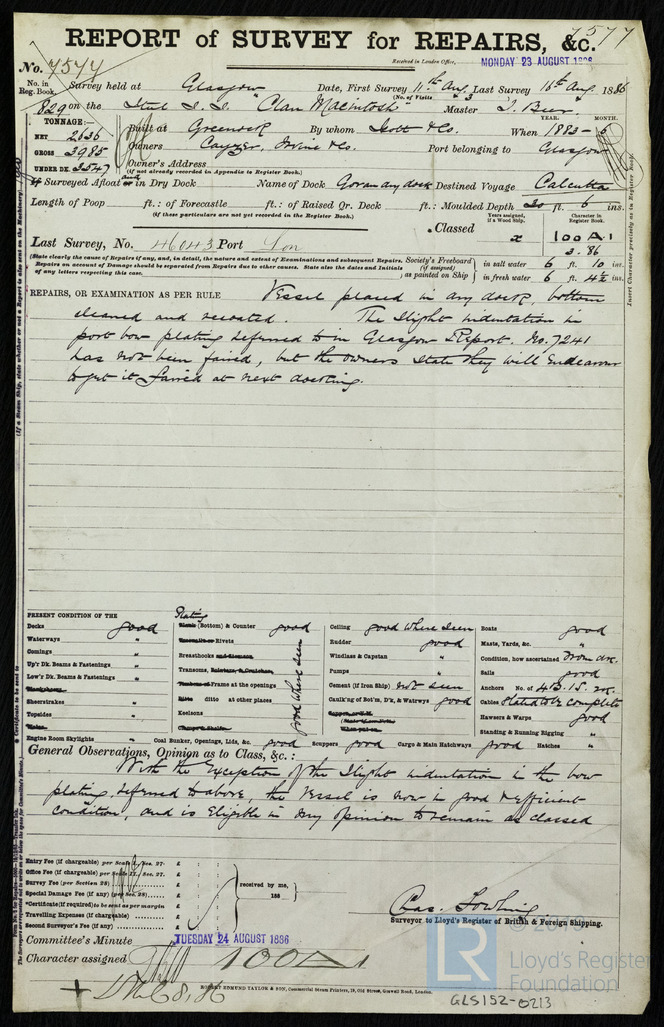 7577
REPORT of SURVEY for REPAIRS, &c.
Received in London Office, MONDAY 23 AUGUST 1886
No. 7577
No. in Reg. Book.
Survey held at Glasgow Date, First Survey 11th Aug. Last Survey 16th Aug. 1886
(No. of Visits 3)
829 on the Steel S.S. "Clan Macintosh" Master
TONNAGE:—
NET 2636
GROSS 3985
UNDER DK. 3547
Built at Greenock By whom Scott & Co. When 1883 - 6
YEAR. MONTH.
Owners Cayzer, Irvine & Co. Port belonging to Glasgow
Owner's Address
(if not already recorded in Appendix to Register Book.)
If Surveyed Afloat and in Dry Dock Name of Dock Govan dry dock Destined Voyage Calcutta
Length of Poop ft.: of Forecastle ft.: of Raised Qr. Deck ft.: Moulded Depth 30 ft. 6 ins.
(if those particulars are not yet recorded in the Register Book.)
Years assigned, if a Wood Ship. Character in Register Book.
Classed x 100 A 1
3.86
Last Survey, No. 46043 Port Lon
(State clearly the cause of Repairs if any, and, in detail, the nature and extent of Examinations and subsequent Repairs.
Repairs on account of Damage should be separated from Repairs due to other causes. State also the dates and Initials
of any letters respecting this case.)
Society's Freeboard (if assigned) as painted on Ship
in salt water 6 ft. 10 ins.
in fresh water 6 ft. 4½ ins.
REPAIRS, OR EXAMINATION AS PER RULE Vessel placed in dry dock, bottom
cleaned and recoated. The slight indentation in
port bow plating referred to in Glasgow Report. No. 7241
has not been faired, but the owners state they will endeavour
to get it faired at next docking.
PRESENT CONDITION OF THE
Decks good
Waterways "
Comings "
Up'r Dk. Beams & Fastenings "
Low'r Dk. Beams & Fastenings "
Sheerstrakes "
Topsides "
Engine Room Skylights "
Plating (Bottom) & Counter good
Rivets
Breasthooks
Transoms,
Frame at the openings
ditto at other places
Keelsons
good where seen
Coal Bunker, Openings, Lids, &c. good Scuppers good Cargo & Main Hatchways good Hatches "
Ceiling good where seen
Rudder good
Windlass & Capstan "
Pumps "
Cement (if Iron Ship) not seen
Caulk'ng of Bot'm, D'k, & Watrwys good
Boats good
Masts, Yards, &c. "
Condition, how ascertained from dk.
Sails good
Anchors No. of 4B.1S.2K.
Cables Stated to be complete
Hawsers & Warps good
Standing & Running Rigging "
General Observations, Opinion as to Class, &c.:
With the exception of the slight indentation in the bow
plating, referred to above, the vessel is now in good & efficient
condition, and is eligible in my opinion to remain as classed
Entry Fee (if chargeable) per Scale I., Sec. 27. £ : :
Office Fee (if chargeable) per Scale II., Sec. 27. £ : :
Survey Fee (per Section 28) £ : :
Special Damage Fee (if any) (per Sec. 28) £ : :
*Certificate (if required) to be sent as per margin
Travelling Expenses (if chargeable) £ : :
Second Surveyor's Fee (if any) £ : :
received by me,
188
Chas. Fowling
Surveyor to Lloyd's Register of British & Foreign Shipping.
Committee's Minute TUESDAY 24 AUGUST 1886
Character assigned 100 A 1
+ LMC 8,86
ROBERT EDMUND TAYLOR & SON, Commercial Steam Printers, 19, Old Street, Goswell Road, London.
GLS152-0213
LR
Lloyd's Register
Foundation
Insert Character precisely as in Register Book.